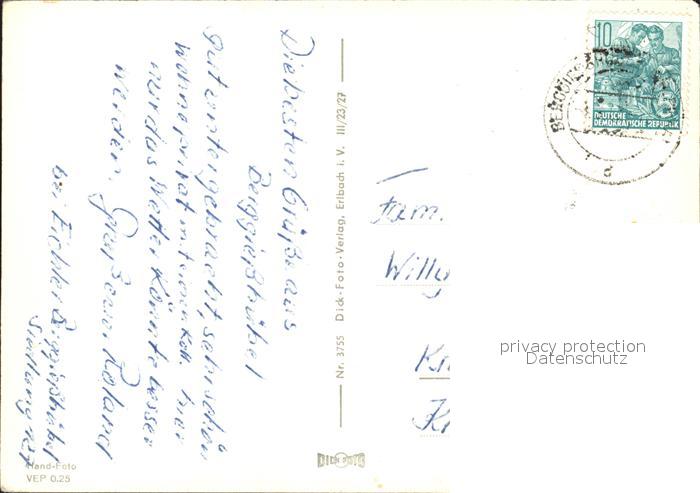 Die besten Grüße aus
Berggießhübel
Gut untergebracht, sehr schön
wohne privat m. einen Koll. hier
nur das Wetter könnte besser
werden. Grüße
Roland
bei Eichler Berggießhübel
Siedlung
Hand-Foto
VEP 0.25
Nr. 3755 Dick-Foto-Verlag, Erlbach i. V. III/23/27
DICK FOTO
10
DEUTSCHE
DEMOKRATISCHE REPUBLIK
d
Fam.
Willy
privacy protection
Datenschutz